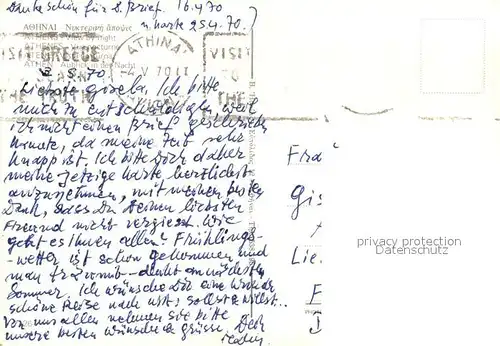 Dankeschön für d. Brief. 16.4.70
u. Karte 25.4.70.)
ΑΘΗΝΑΙ Νυκτερινή άποψις
ATHENS View by night
ATHEN Anblick in der Nacht
VISIT GREECE
ATHINAI
-4.V.70
VISIT
THE
5. 70.
Liebste Gisela, Ich bitte
mich zu entschuldigen, weil
ich nicht einen Brief geschrieben
konnte, da meine Zeit sehr
knapp ist. Ich bitte Dich daher
meine jetzige Karte herzlichst
anzunehmen, mit meinen besten
Dank, dass Du Deinen liebsten
Freund nicht vergisst. Wie
geht es Ihnen allen? Frühlings-
wetter ist schon gekommen und
man denkt am nächsten
Sommer. Ich wünsche Dir eine
schöne Reise nach
Von uns allen nehmen sie bitte
unsere besten Wünsche u. Grüsse, Dein
Fra
Gis
Lie.
F
privacy protection
Datenschutz